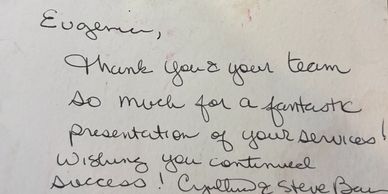 Eugenia,
Thank you & your team
so much for a fantastic
presentation of your services!
Wishing you continued
success! Cynthia & Steve